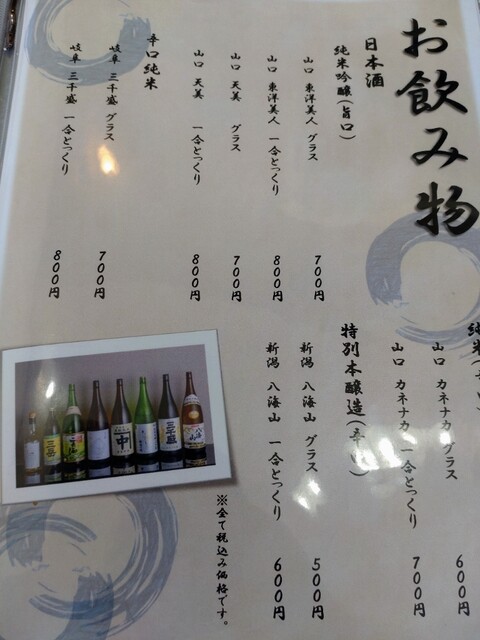 お飲み物
日本酒
純米吟醸(旨口)
山口 東洋美人 グラス 700円
山口 東洋美人 一合とっくり 800円
山口 天美 グラス 700円
山口 天美 一合とっくり 800円
辛口純米
岐阜 三千盛 グラス 700円
岐阜 三千盛 一合とっくり 800円
純米(辛口)
山口 カネナカ グラス 600円
山口 カネナカ 一合とっくり 700円
特別本醸造(辛口)
新潟 八海山 グラス 500円
新潟 八海山 一合とっくり 600円
※全て税込み価格です。
三岳
中
三千盛
八海山